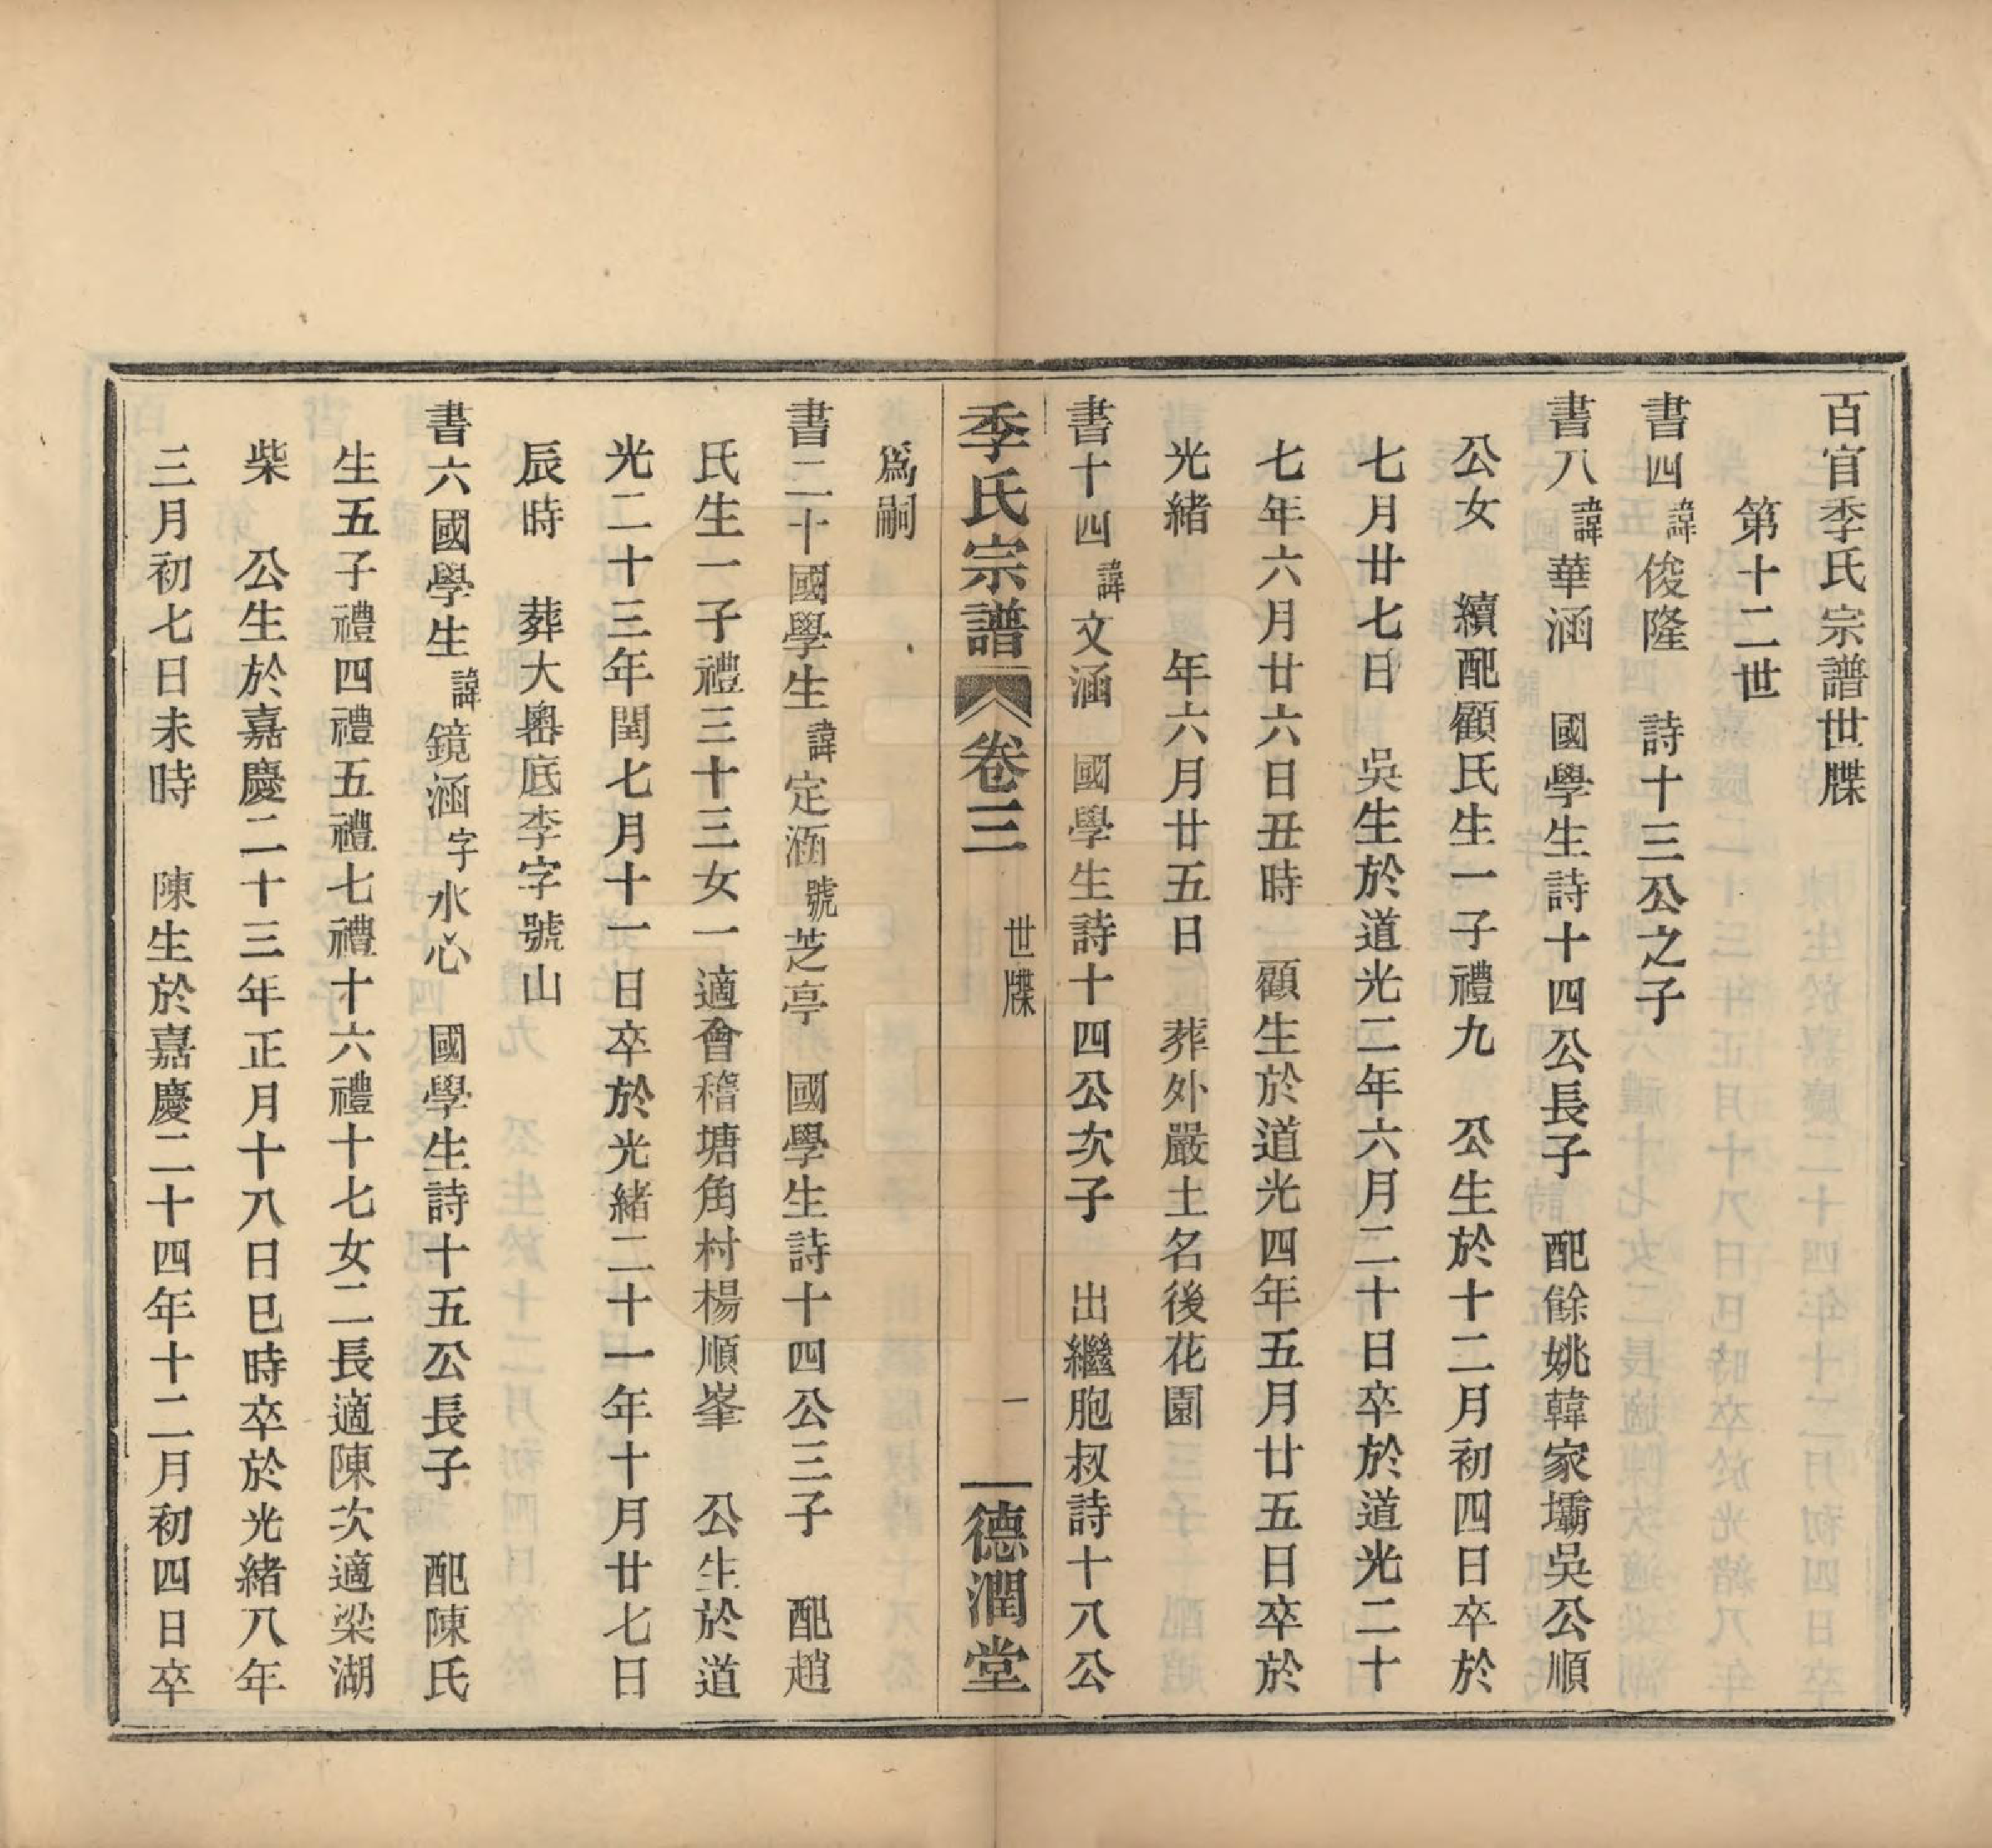 百官季氏宗譜世牒
第十二世
書四諱俊隆　詩十三公之子
書八諱華涵　國學生詩十四公長子　配餘姚韓家壩吳公順
公女　續配顧氏生一子禮九　公生於十二月初四日卒於
七月廿七日　吳生於道光二年六月二十日卒於道光二十
七年六月廿六日丑時　顧生於道光四年五月廿五日卒於
光緒　年六月廿五日　葬外嚴土名後花園
書十四諱文涵　國學生詩十四公次子　出繼胞叔詩十八公
季氏宗譜　卷三　世牒　一　德潤堂
爲嗣
書二十國學生諱定涵號芝亭　國學生詩十四公三子　配趙
氏生一子禮三十三女一適會稽塘角村楊順峯　公生於道
光二十三年閏七月十一日卒於光緒二十一年十月廿七日
辰時　葬大嶴底李字號山
書六國學生諱鏡涵字水心　國學生詩十五公長子　配陳氏
生五子禮四禮五禮七禮十六禮十七女二長適陳次適梁湖
柴　公生於嘉慶二十三年正月十八日巳時卒於光緒八年
三月初七日未時　陳生於嘉慶二十四年十二月初四日卒